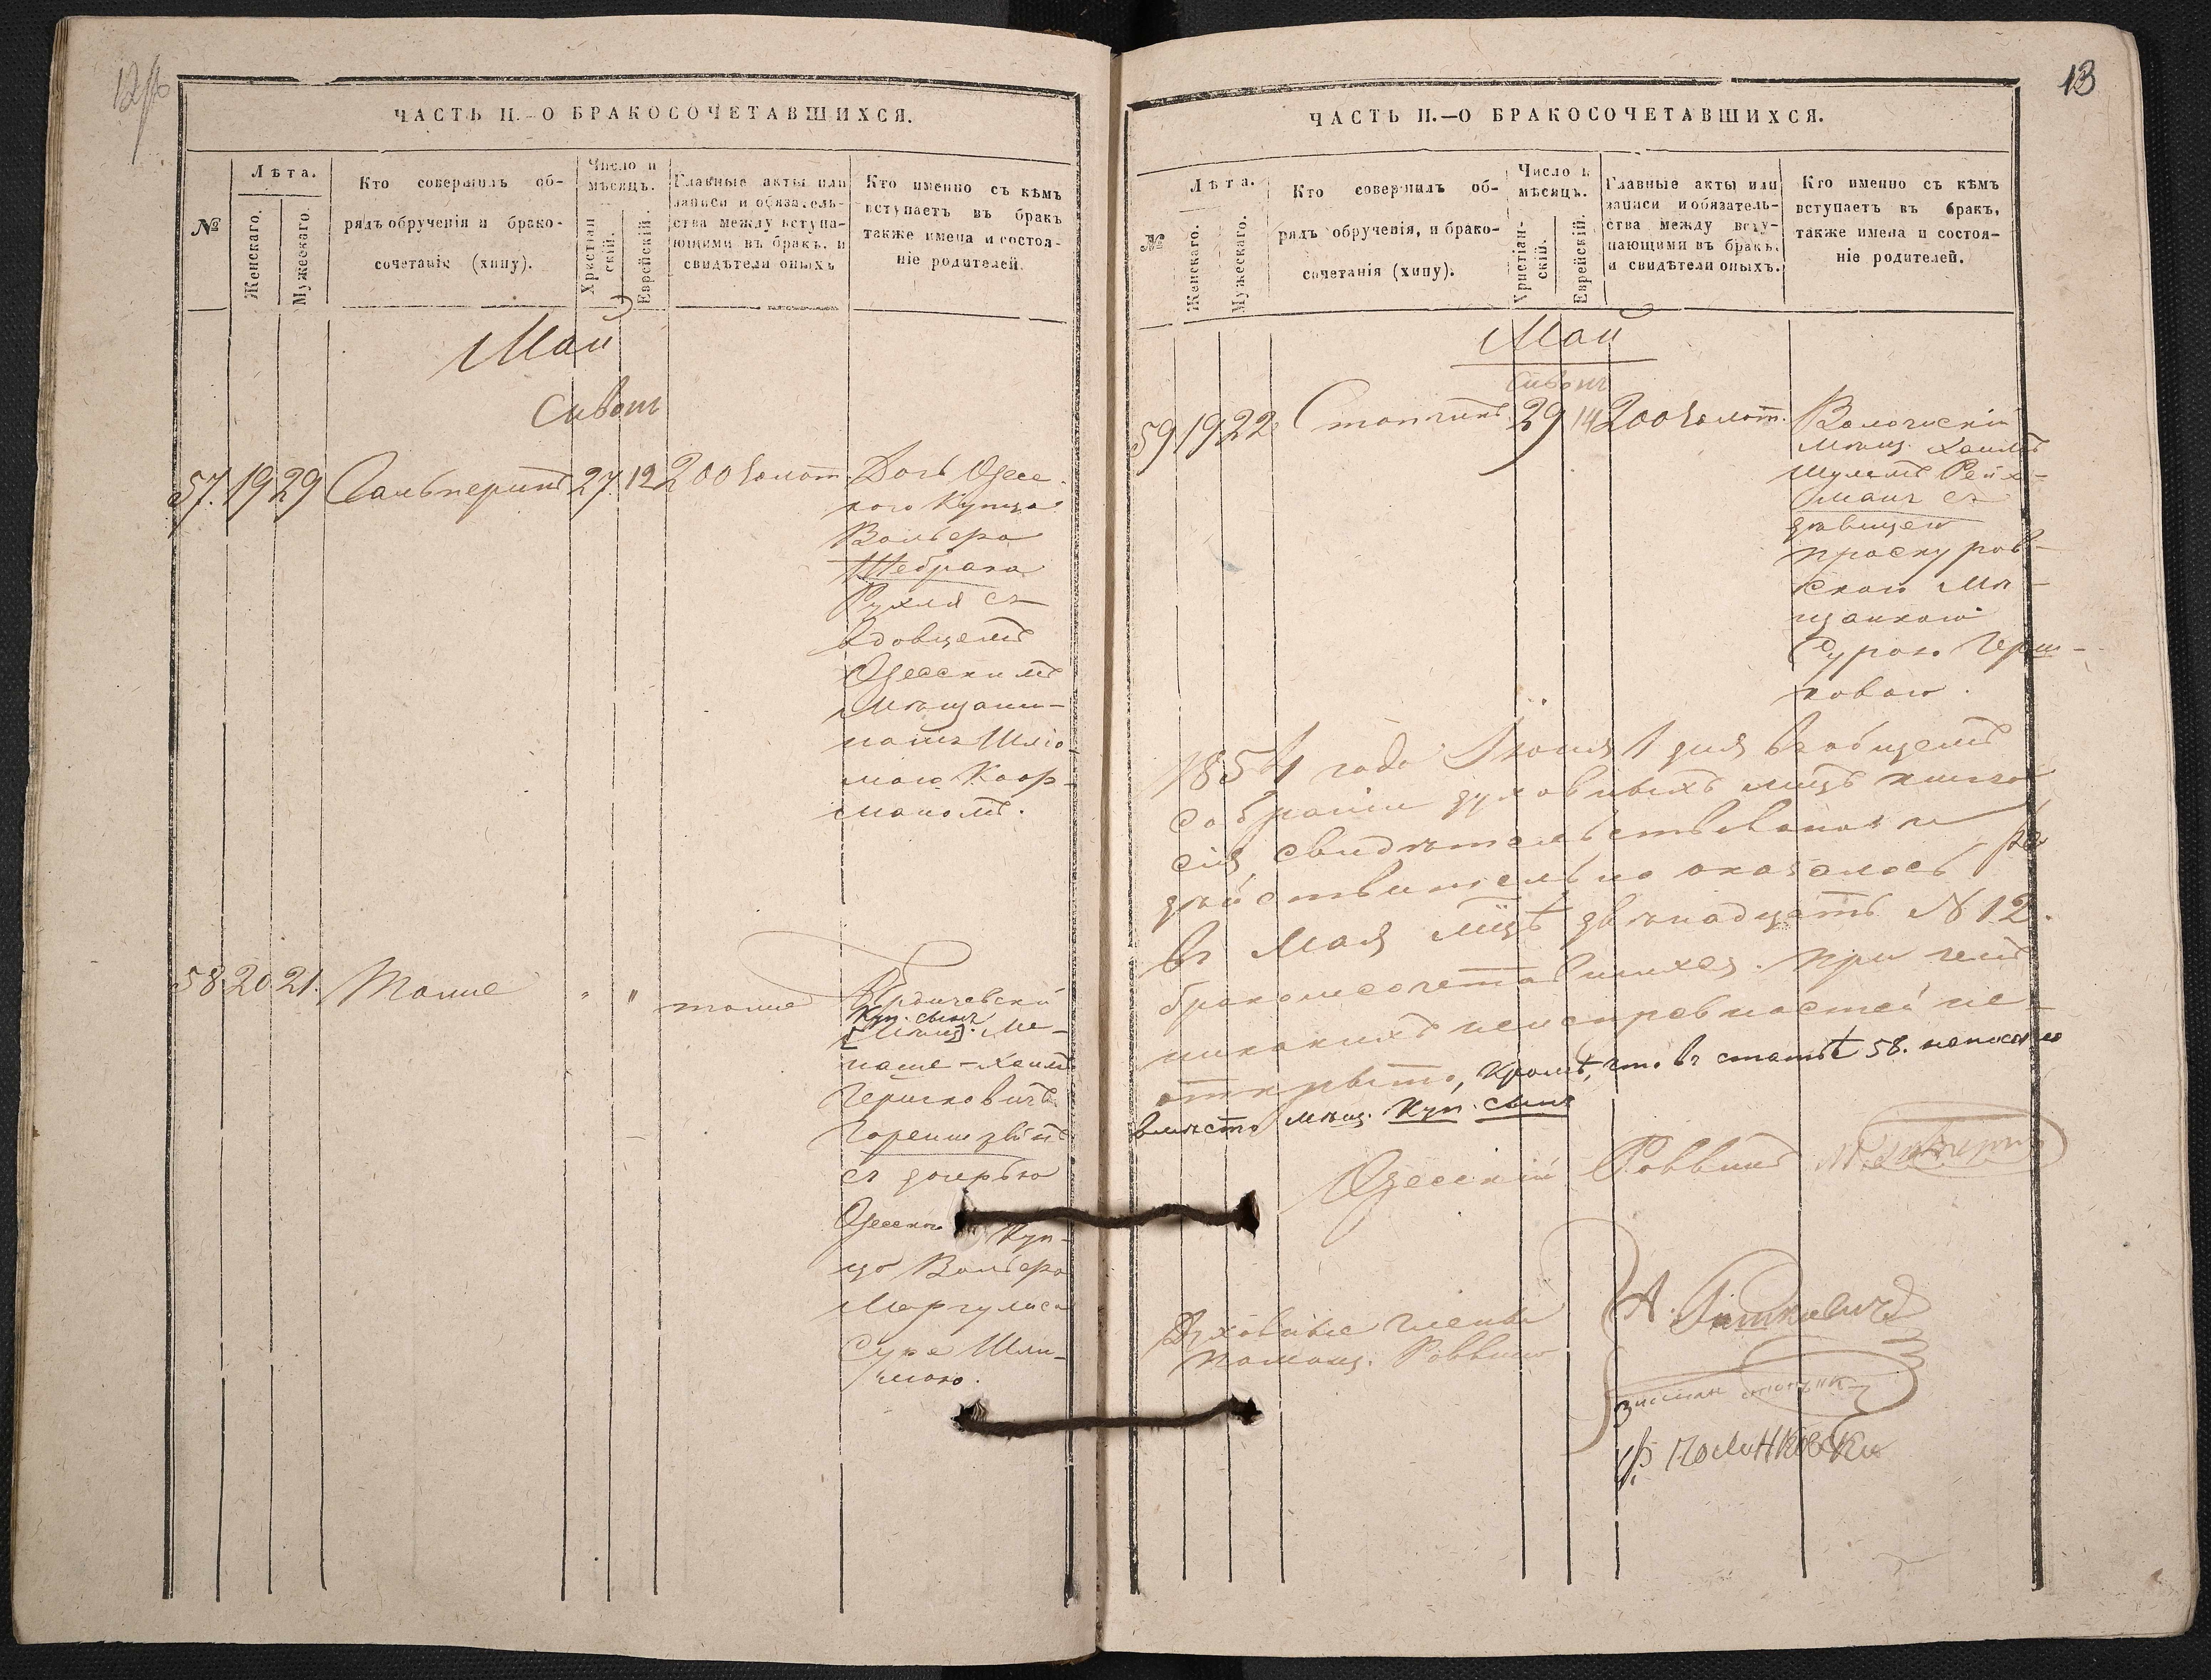 12об
ЧАСТЬ II.—О БРАКОСОЧЕТАВШИХСЯ.
№
Лѣта.
Женскаго.
Мужескаго.
Кто совершилъ об-
рядъ обрученія и брако-
сочетаніе (хипу).
Число и
мѣсяцъ.
Христіан
скій.
Еврейскій.
Главные акты или
записи и обязатель-
ства между вступа-
ющими въ бракъ, и
свидѣтели оныхъ
Кто именно съ кѣмъ
вступаетъ въ бракъ
также имена и состоя-
ніе родителей.
Май
Сивонъ
57. 19 29 Гальперинъ 27. 12 200 золот. Дочь Одес-
кого Купца
Вольера
Рухля съ
вдовцемъ
Одесскимъ
Мѣщани-
номъ Шліо-
мою Коор-
маномъ.
58 20 21. Тоже " " тоже Бердичевскій
Куп. сынъ
[Мѣщ]. Ме-
наше-Хаимъ
Гершковичъ
съ дочерью
Одесска Куп-
ца Вольера
Маргулиса
Сура Шли-
мою.
13
ЧАСТЬ II.—О БРАКОСОЧЕТАВШИХСЯ.
№
Лѣта.
Женскаго.
Мужескаго.
Кто совершилъ об-
рядъ обрученія, и брако-
сочетанія (хипу).
Число и
мѣсяцъ.
Христіан-
скій.
Еврейскій.
Главные акты или
записи и обязатель-
ства между всту-
пающими въ бракъ.
и свидѣтели оныхъ.
Кто именно съ кѣмъ
вступаетъ въ бракъ,
также имена и состоя-
ніе родителей.
Май
Сивонъ
59 19 22 29 14 200 золот. Волочискій
Мѣщ. Хаимъ
Шулимъ Рейх-
манъ съ
дѣвицею
проскуров-
скою Мѣ-
щанкою
Сурою Герш-
ковою.
1854 года Іюня 1 дня въ общемъ
собраніи духовныхъ лицъ книга
сія свидѣтельствована и
дѣйствительно оказалось
въ Маѣ мцѣ двѣнадцать N 12.
бракосочетавшихся. при чемъ
никакихъ неисправностей не
открыто, кромѣ, что въ статьѣ 58. написано
вмѣсто мѣщ. Куп. сынъ
Одесскій Раввинъ
Духовные члены
помощ. Раввина